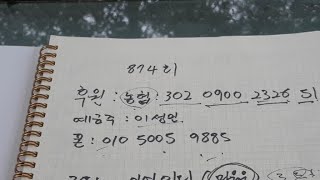 874회
후원 : 농협 : 302 0900 2326 51
예금주 : 이성민
폰 : 010 5005 9885